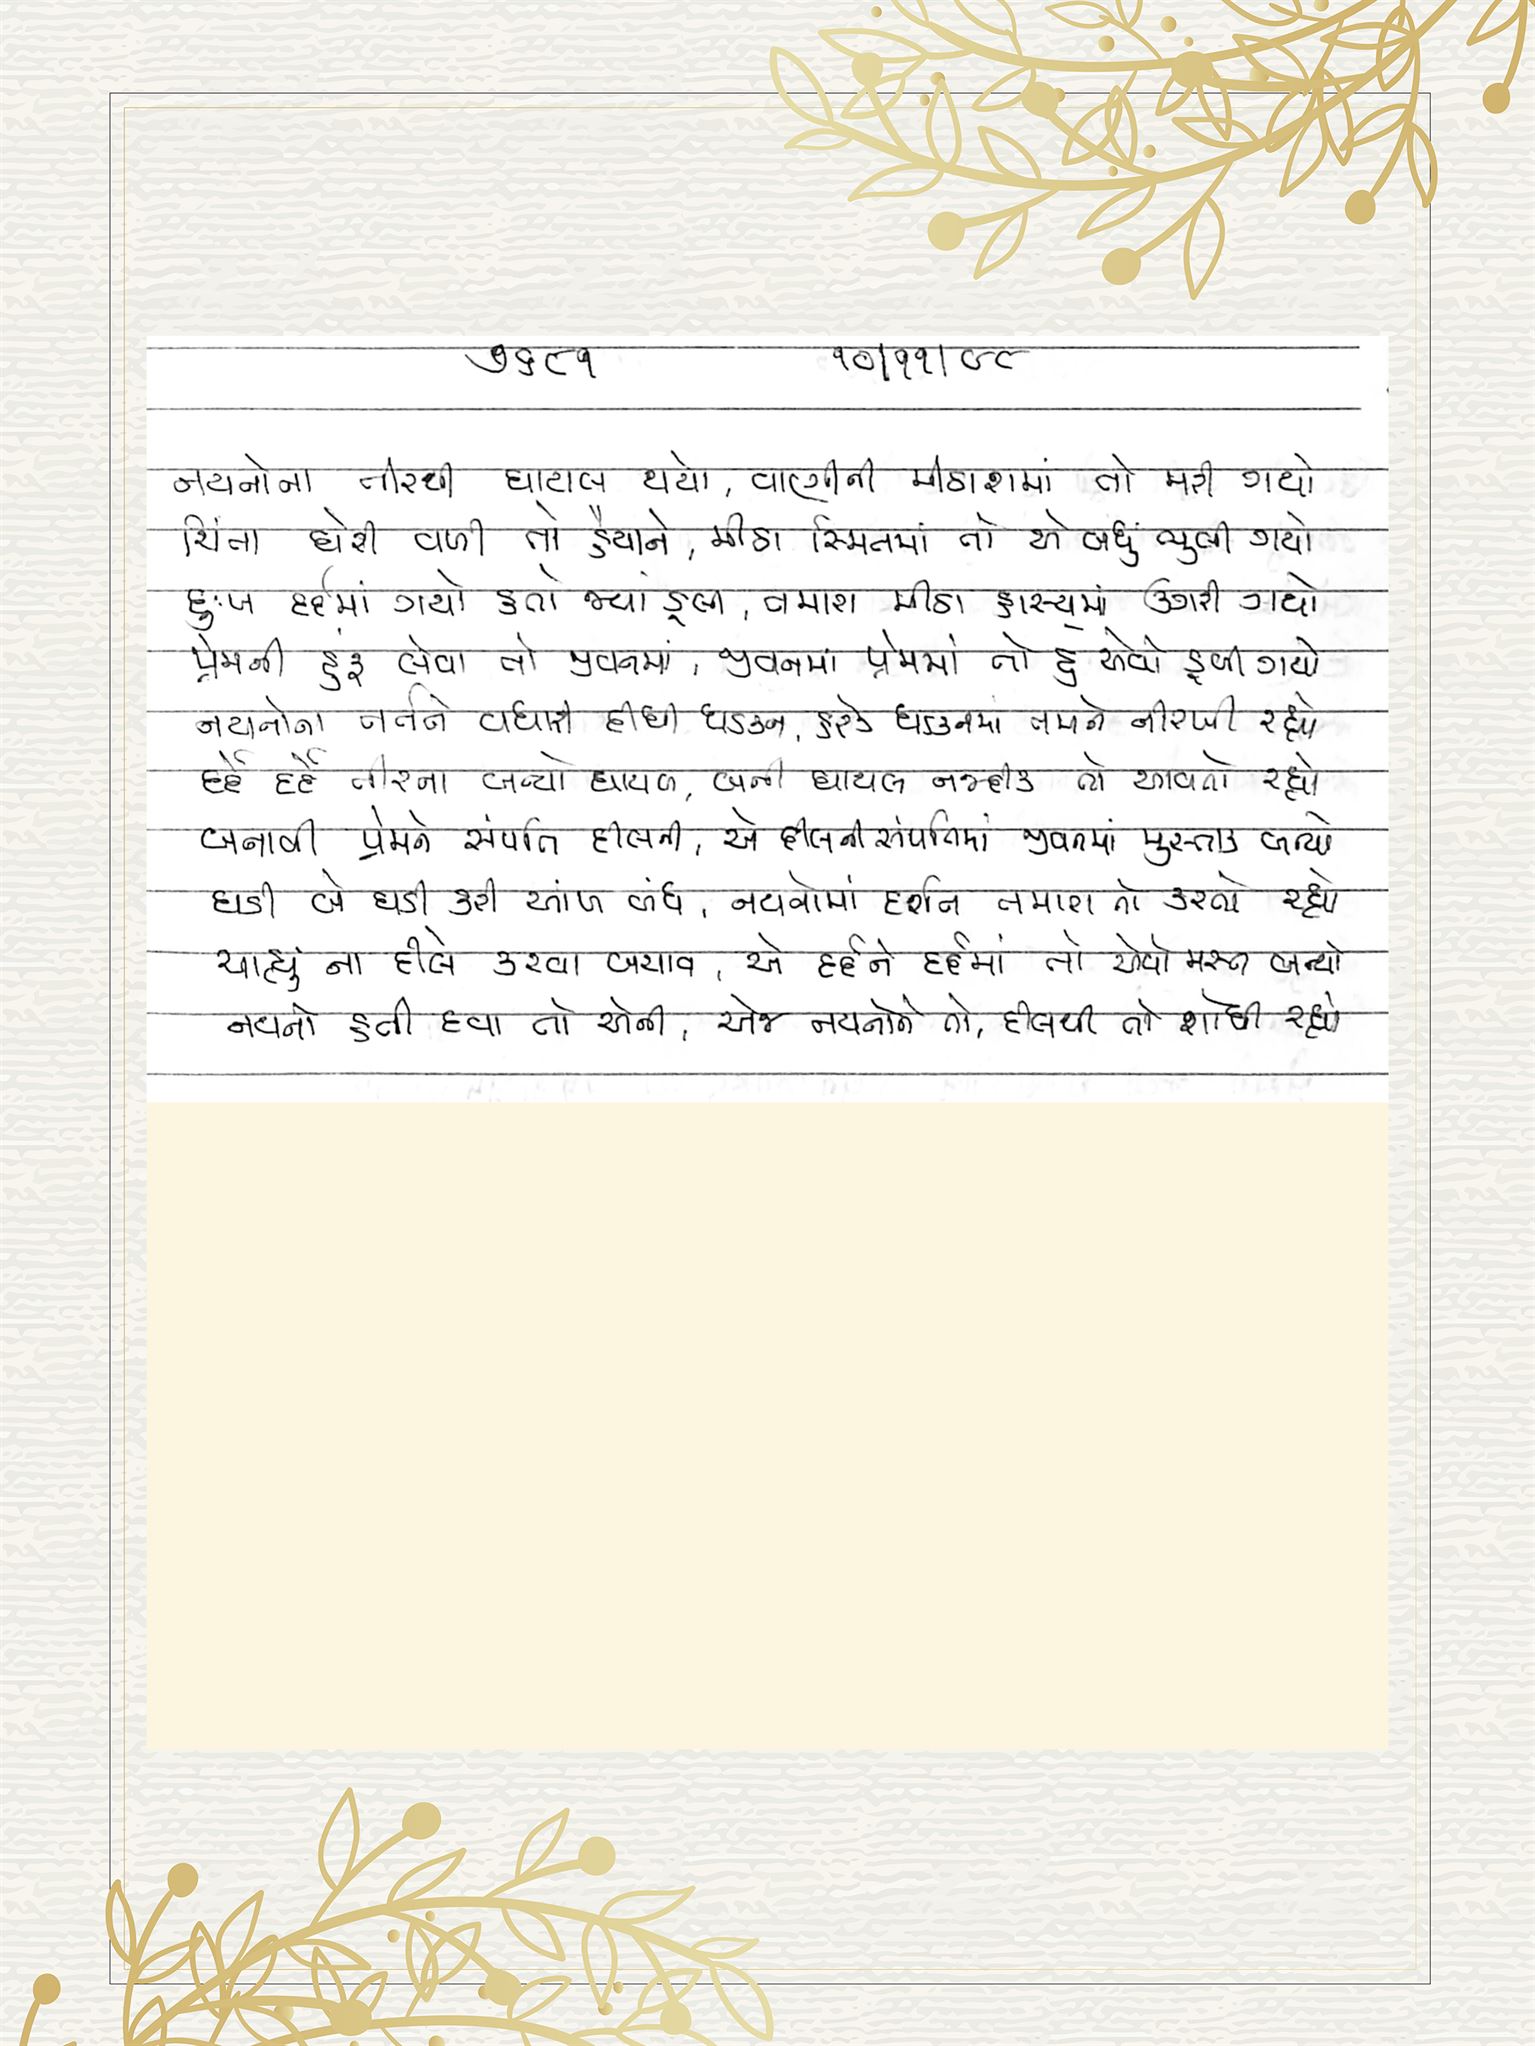 ૭૬૯૧ ૧૦/૧૧/૯૯
નયનોના તીરથી ઘાયલ થયો, વાણીની મીઠાશમાં તો મરી ગયો
ચિંતા ઘેરી વળી તો હૈયાને, મીઠા સ્મિતમાં તો એ બધું ભુલી ગયો
દુઃખ દર્દમાં ગયો હતો જ્યાં ડૂબી, તમારા મીઠા હાસ્યમાં ઉગરી ગયો
પ્રેમની હુંફ લેવા તો જીવનમાં, જીવનમાં પ્રેમમાં તો હું એવો ડૂબી ગયો
નયનોના નર્તને વધારી દીધી ધડકન, હરેક ધડકનમાં તમને નીરખી રહ્યો
દર્દે દર્દે તીરના બન્યો ઘાયલ, બની ઘાયલ નજદીક તો આવતો રહ્યો
બનાવી પ્રેમને સંપત્તિ દીલની, એ દીલની સંપત્તિમાં જીવનમાં મુસ્તાક બન્યો
ઘડી બે ઘડી કરી આંખ બંધ, નયનોમાં દર્શન તમારા તો કરતો રહ્યો
ચાહ્યું ના દીલે કરવા બચાવ, એ દર્દને દર્દમાં તો એવો મસ્ત બન્યો
નયનો હતી દવા તો એની, એજ નયનોને તો, દીલથી તો શોધી રહ્યો